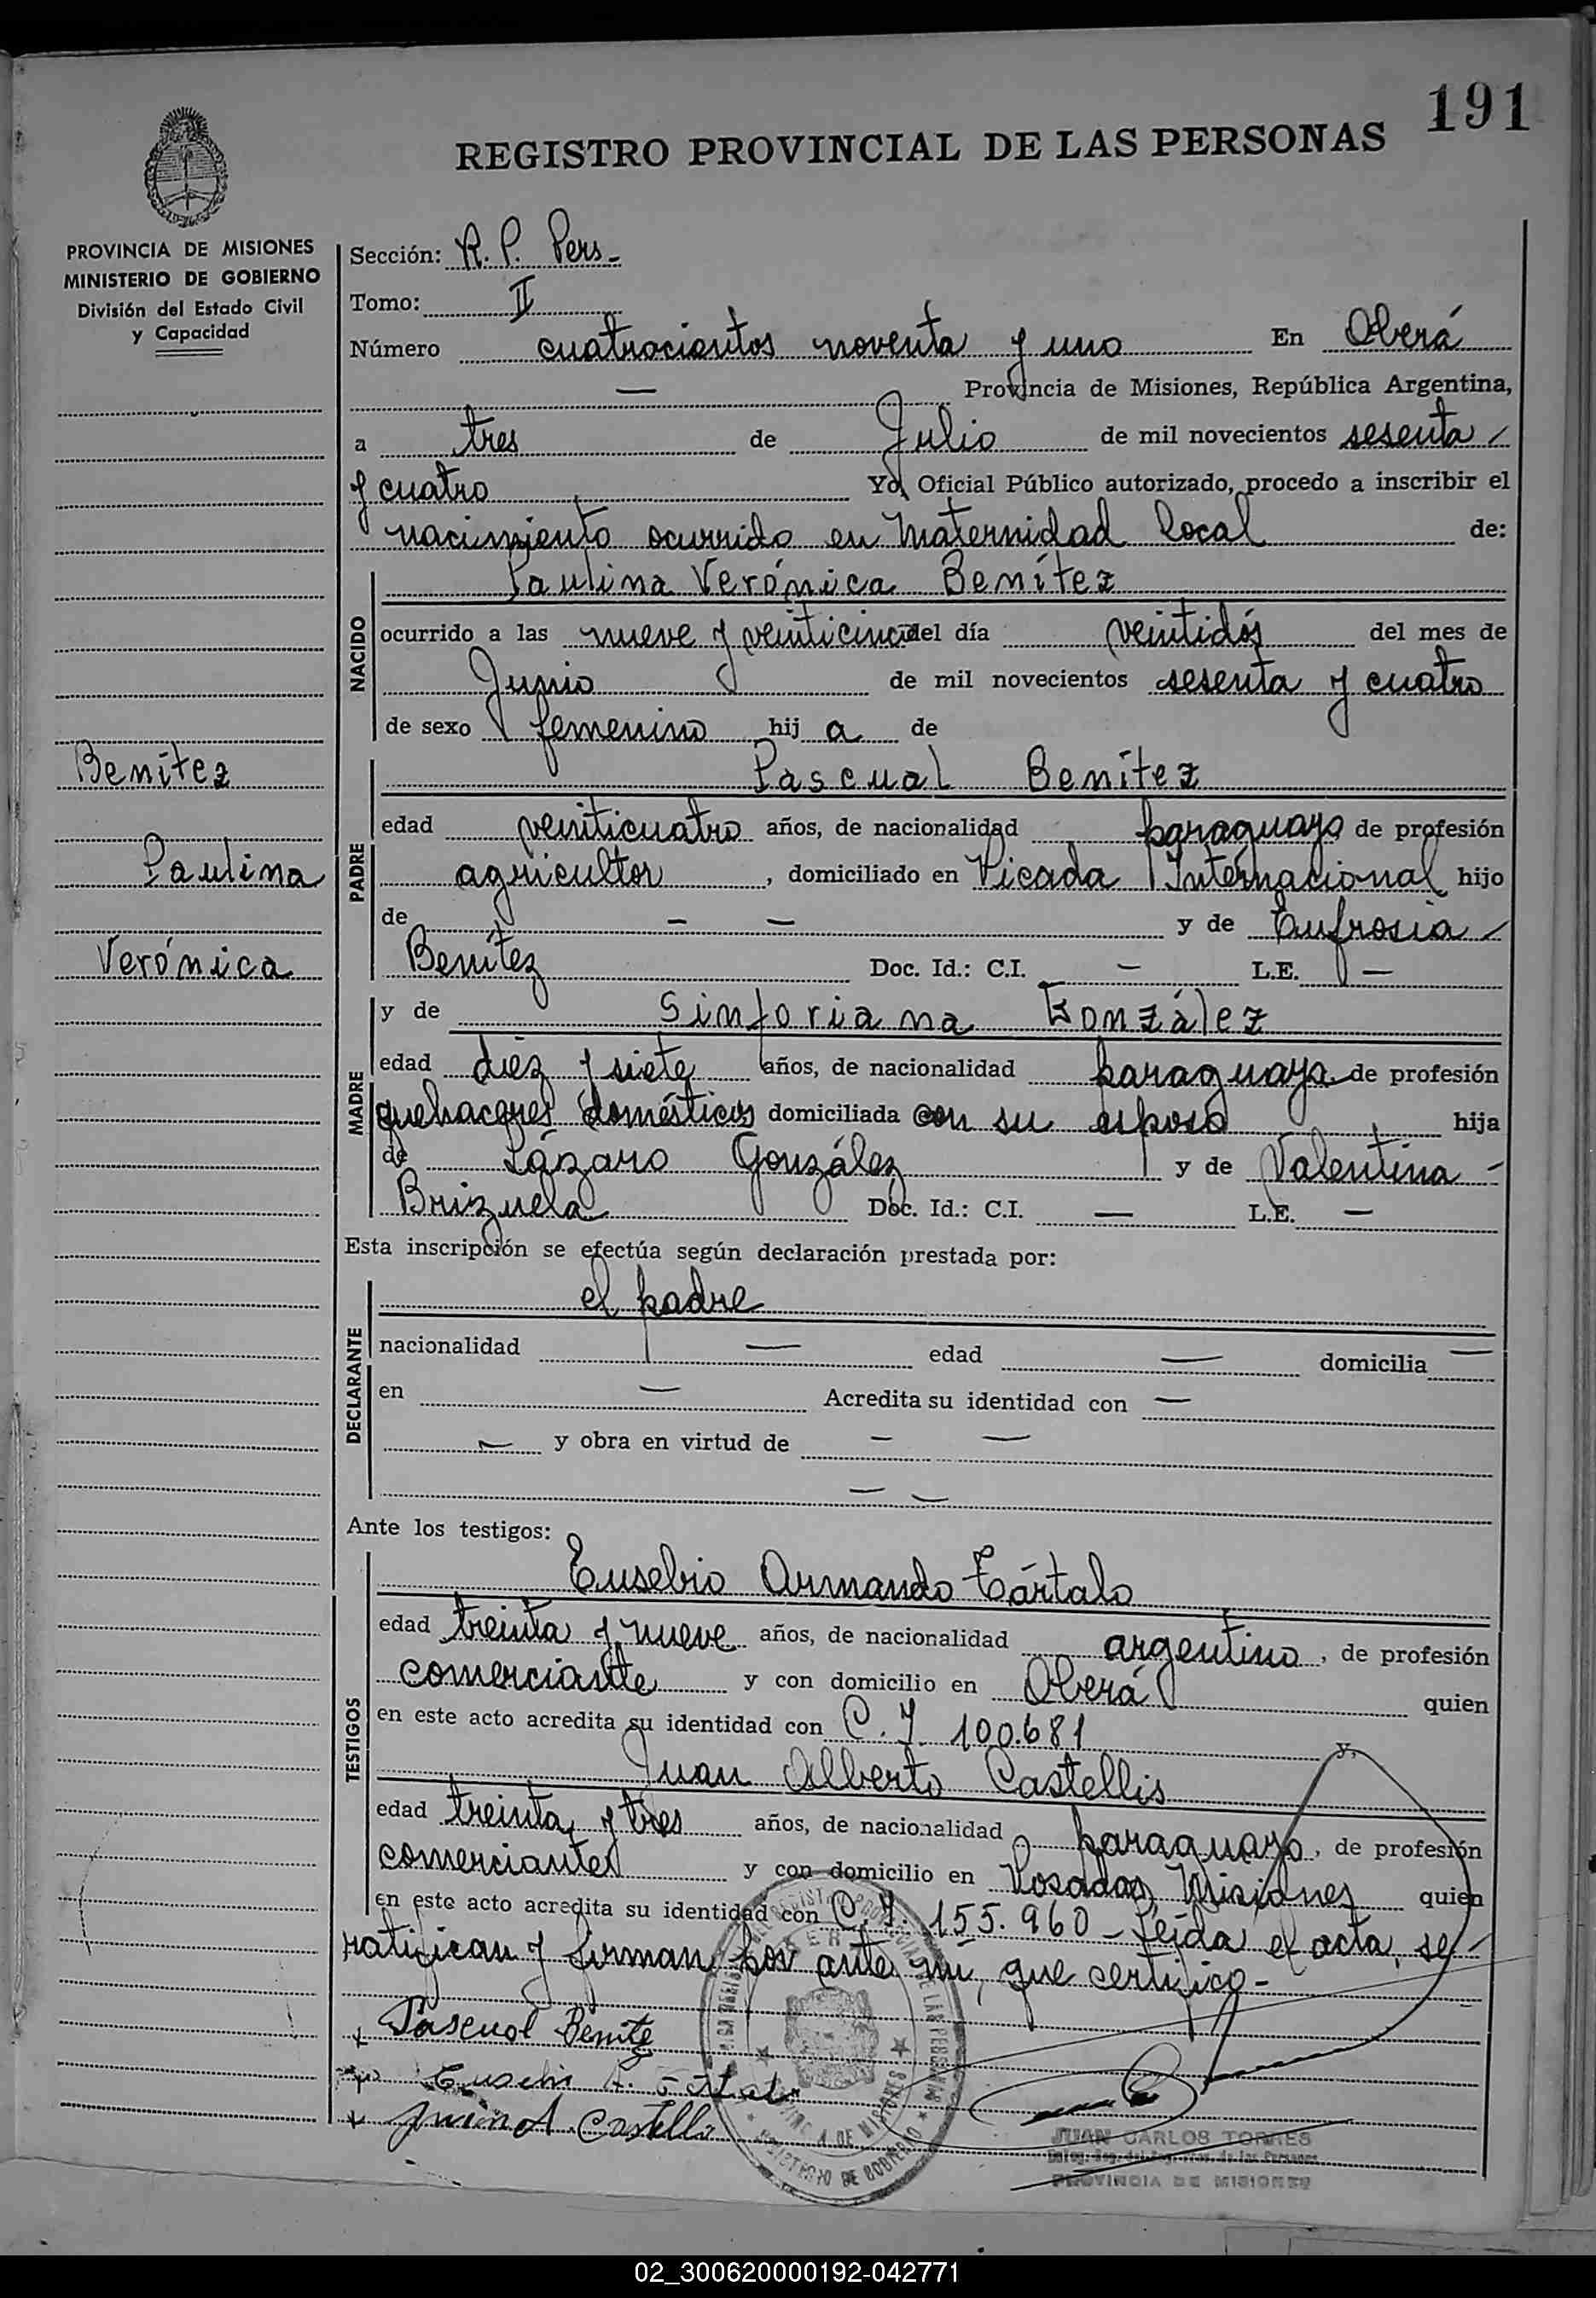 191
REGISTRO PROVINCIAL DE LAS PERSONAS
PROVINCIA DE MISIONES
MINISTERIO DE GOBIERNO
División del Estado Civil
y Capacidad
Benítez
Paulina
Verónica
Sección: R. P. Pers-
Tomo: II
Número cuatrocientos noventa y uno En Oberá
— Provincia de Misiones, República Argentina,
a tres de Julio de mil novecientos sesenta /
y cuatro Yo, Oficial Público autorizado, procedo a inscribir el
nacimiento ocurrido en Maternidad local de:
NACIDO
Paulina Verónica Benítez
ocurrido a las nueve y veinticinco del día veintidós del mes de
Junio de mil novecientos sesenta y cuatro
de sexo femenino hij a de
PADRE
Pascual Benítez
edad veinticuatro años, de nacionalidad paraguaya de profesión
agricultor, domiciliado en Picada Internacional hijo
de — — y de Eufrosia /
Benítez Doc. Id.: C.I. — L.E. —
MADRE
y de Sinforiana González
edad diez y siete años, de nacionalidad paraguaya de profesión
quehaceres domésticos domiciliada con su esposo hija
de Lázaro González y de Valentina -
Brizuela Doc. Id.: C.I. — L.E. —
Esta inscripción se efectúa según declaración prestada por:
DECLARANTE
el padre
nacionalidad — edad — domicilia —
en — Acredita su identidad con —
— y obra en virtud de — —
— —
Ante los testigos:
TESTIGOS
Eusebio Armando Tártalo
edad treinta y nueve años, de nacionalidad argentino, de profesión
comerciante y con domicilio en Oberá quien
en este acto acredita su identidad con C. I. 100.681 y,
Juan Alberto Castellis
edad treinta y tres años, de nacionalidad paraguayo, de profesión
comerciante y con domicilio en Posadas, Misiones quien
en este acto acredita su identidad con C. I. 155.960 - Leída el acta, se -
ratifican y firman por ante mí, que certifico -
x Pascual Benitez
x Juan A. Castelli
JUAN CARLOS TORRES
PROVINCIA DE MISIONES
MINISTERIO DE GOBIERNO
02_300620000192-042771